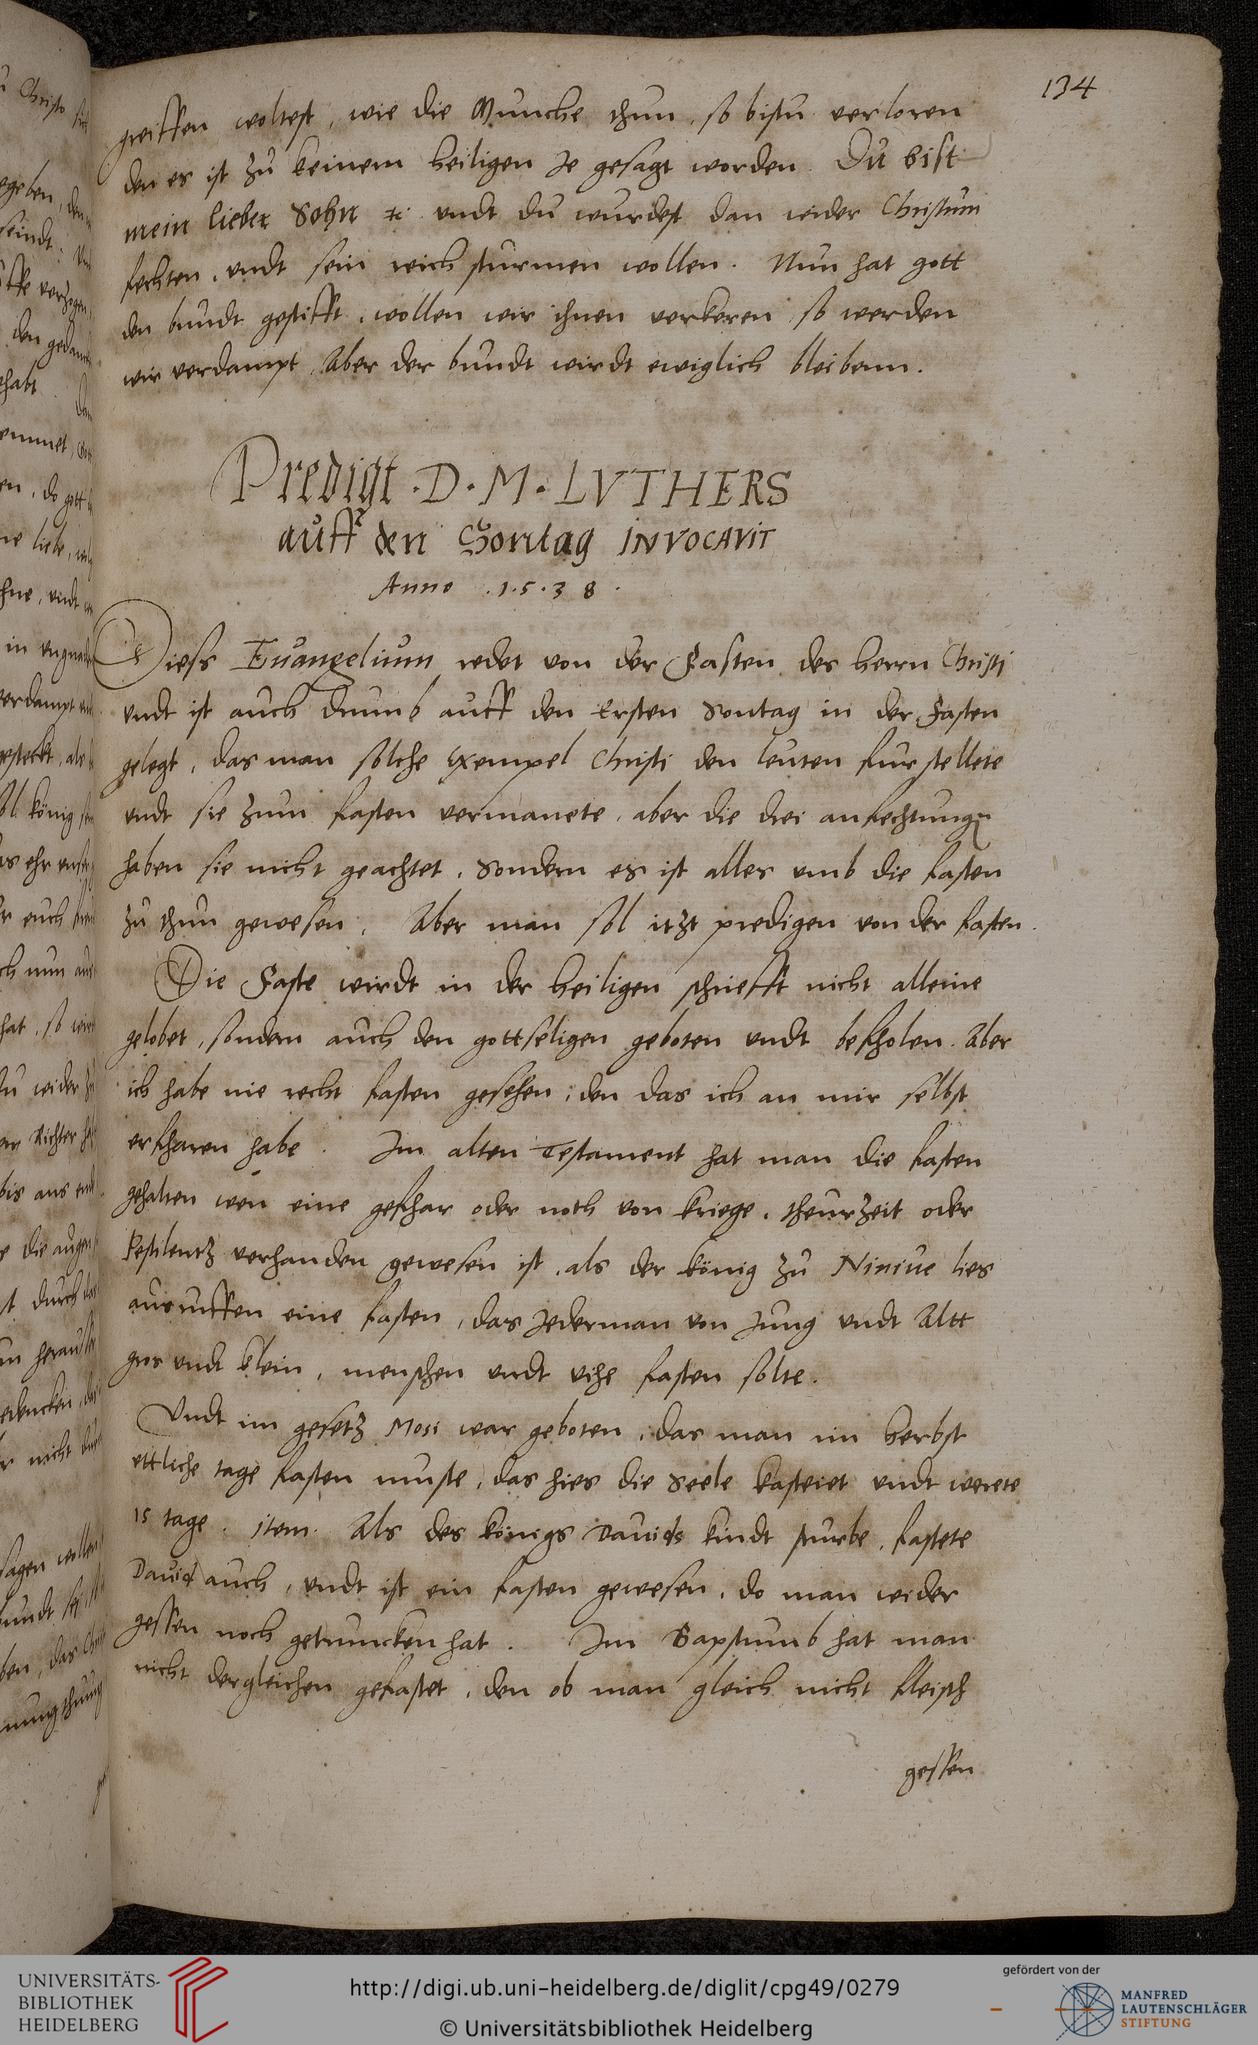 134
greiffen woltest, wie die Munche thun, so bistu verloren
den es ist zu keinem heiligen Je gesagt worden Du bist
mein lieber Sohn ꝛc undt du wurdest dan wider Christum
fechten, undt sein reich sturmen wollen. Nun hat gott
den bundt gestifft, wollen wir ihnen verkeren, so werden
wir verdampt, Aber der bundt wirdt ewiglich bleibenn.
Predigt · D · M · LVTHERS
auff den Sontag INVOCAVIT
Anno .1.5.3 8.
Diess Euangelium redet von der Fasten des herrn Christi
undt ist auch drumb auff den Ersten Sontag in der Fasten
gelegt, das man solche Exempel Christi den leuten furstellete
undt sie zum fasten vermanete, aber die drei anfechtung
haben sie nicht geachtet, Sondern es ist alles umb die fasten
zu thun gewesen. Aber man sol itzt predigen von der fasten.
Die Faste wirdt in der heiligen schriefft nicht alleine
gelobet, sondern auch den gottseligen geboten undt befholen. Aber
ich habe nie recht fasten gesehen, den das ich an mir selbst
erfharen habe. Im alten Testament hat man die fasten
gehalten wen eine gefhar oder noth von kriege, theurzeit oder
Pestilentz verhanden gewesen ist, als der könig zu Niniue lies
ausruffen eine fasten, das Jederman von Jung undt Altt
gros undt klein, menschen undt vihe fasten solte.
Undt im gesetz Mosi war geboten, das man im herbst
ettliche tage fasten muste, das hies die Seele kasteiet undt werete
15 tage. Item. Als des königs Dauids kindt sturbe, fastete
Dauid auch, undt ist ein fasten gewesen, do man weder
gessen noch getruncken hat. Im Bapstumb hat man
nicht dergleichen gefastet, den ob man gleich nicht fleisch
gessen
UNIVERSITÄTS-
BIBLIOTHEK
HEIDELBERG
http://digi.ub.uni-heidelberg.de/diglit/cpg49/0279
© Universitätsbibliothek Heidelberg
gefördert von der
MANFRED
LAUTENSCHLÄGER
STIFTUNG